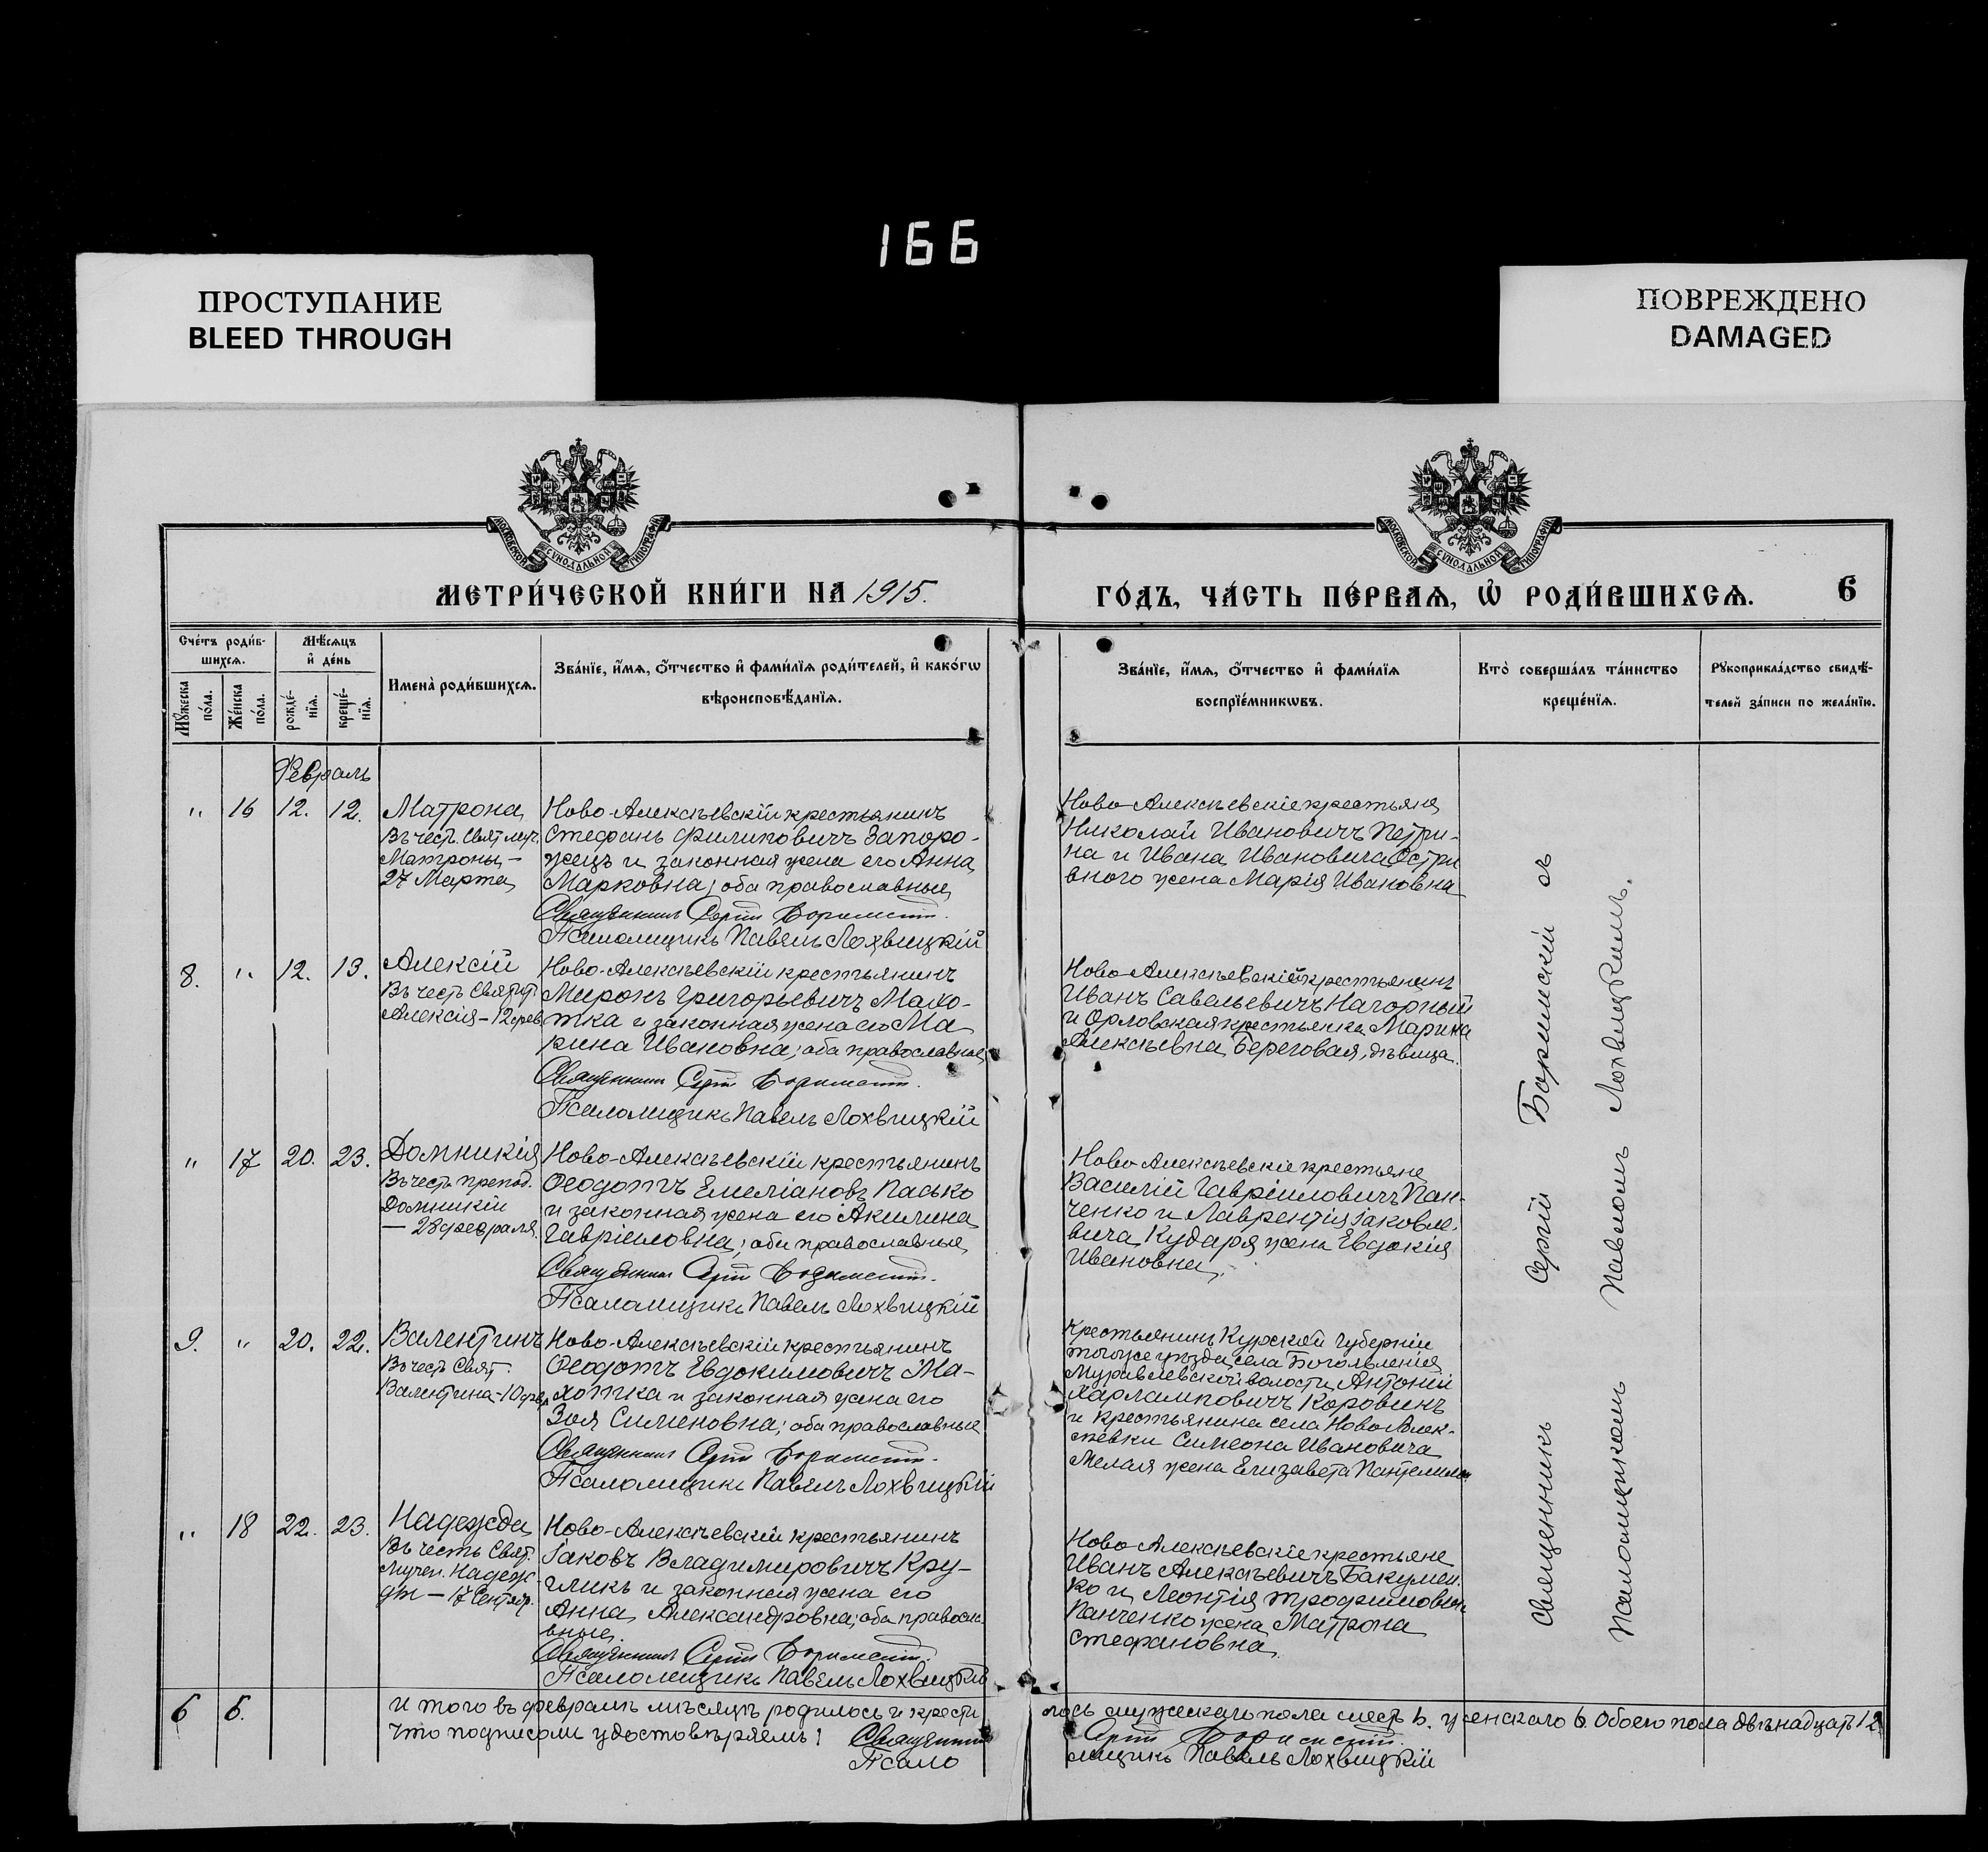 166
ПРОСТУПАНИЕ
BLEED THROUGH
ПОВРЕЖДЕНО
DAMAGED
МОСКОВСКОЙ СУНОДАЛЬНОЙ ТИПОГРАФІИ
МОСКОВСКОЙ СУНОДАЛЬНОЙ ТИПОГРАФІИ
МЕТРИ́ЧЕСКОЙ КНИ́ГИ НА 1915.
ГО́ДЪ, ЧА́СТЬ ПЕ́РВАѦ, Ѡ҆ РОДИ́ВШИХСѦ. 6
Сче́тъ роди́в-
шихсѧ.
Мѣ́сѧцъ
и҆ де́нь
Мꙋ́жеска
по́ла.
Же́нска
по́ла.
рожде́-
нїѧ.
креще́-
нїѧ.
Имена̀ роди́вшихсѧ.
Зва́нїе, и҆́мѧ, ѻ҆́тчество и҆ фами́лїѧ роди́телей, и҆ како́гѡ
вѣроисповѣ́данїѧ.
Зва́нїе, и҆́мѧ, ѻ҆́тчество и҆ фами́лїѧ
воспрїе́мникѡвъ.
Кто̀ соверша́лъ та́инство
креще́нїѧ.
Рꙋкоприкла́дство свидѣ́-
телей за́писи по жела́нїю.
Февраль
" 16 12. 12.
Матрона
Въ честь Свят. муч.
Матроны –
27 Марта
Ново-Алексѣевскій крестьянинъ
Стефанъ Филиповичъ Запоро-
жецъ и законная жена его Анна
Марковна; оба православные
Священникъ Сергій
Псаломщикъ Павелъ Лохвицкій
Ново-Алексѣевскіе крестьяне
Николай Ивановичъ Петри-
на и Ивана Ивановича Остри
вного жена Марія Ивановна
8. " 12. 13.
Алексій
Въ честь Святит.
Алексія – 12 фев
Ново-Алексѣевскій крестьянинъ
Миронъ Григорьевичъ Махо-
тка и законная жена его Ма
рина Ивановна; оба православные
Священникъ Сергій
Псаломщикъ Павелъ Лохвицкій
Ново-Алексѣевскій крестьянинъ
Иванъ Савельевичъ Нагорный
и Орловская крестьянка Марина
Алексѣевна Береговая, дѣвица.
" 17 20. 23.
Домникія
Въ честь препод.
Домникіи
– 28 февраля.
Ново-Алексѣевскій крестьянинъ
Ѳеодотъ Емеліановъ Пасько
и законная жена его Акилина
Гавріиловна; оба православные
Священникъ Сергій
Псаломщикъ Павелъ Лохвицкій
Ново-Алексѣевскіе крестьяне
Василій Гавріиловичъ Пан-
ченко и Лаврентія Іаковле-
вича Кударя жена Евдокія
Ивановна.
9. " 20. 22.
Валентинъ
Въ честь Свят.
Валентина – 10 фев
Ново-Алексѣевскій крестьянинъ
Ѳеодотъ Евдокимовичъ Ма-
хотка и законная жена его
Зоя Сименовна; оба православные
Священникъ Сергій
Псаломщикъ Павелъ Лохвицкій
Крестьянинъ Курской губерніи
тогоже уѣзда, села Богоявленія
Муравлевской волости, Антоній
Харлампovичъ Коровинъ
и крестьянина села Ново-Алек-
сѣевки Симеона Ивановича
жена Елизавета
" 18 22. 23.
Надежда
Въ честь Свят.
Мучен. Надеж-
ды – 17 Сентябр.
Ново-Алексѣевскій крестьянинъ
Іаковъ Владимировичъ Кру-
гликъ и законная жена его
Анна Александровна; оба правосла
вные.
Священникъ Сергій
Псаломщикъ Павелъ Лохвицкій
Ново-Алексѣевскіе крестьяне
Иванъ Алексѣевичъ Бакумен-
ко и Леонтія Трофимовича
Панченко жена Матрона
Стефановна.
Священникъ Сергій Боримскій съ
Псаломщикомъ Павломъ Лохвицкимъ.
6 6.
И того въ февралѣ мѣсяцѣ родилось и крести
лось мужескаго пола шесть 6. женскаго 6. Обоего пола двѣнадцать 12
Что подписомъ удостовѣряемъ: Священникъ
Сергій
Псало
мщикъ Павелъ Лохвицкій